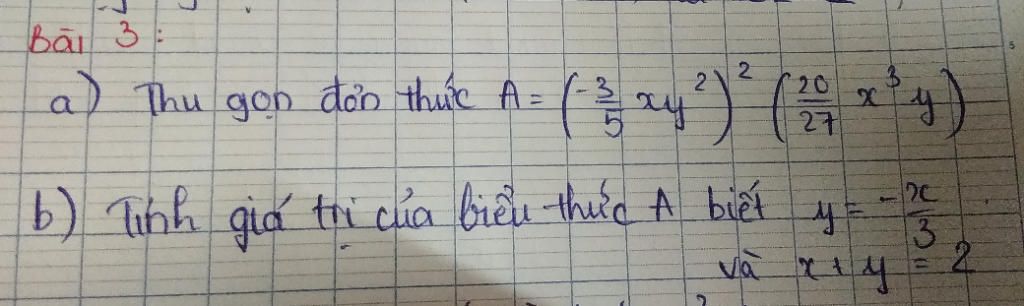 Bài 3:
a) Thu gọn đơn thức A = (-3/5 xy²)² (20/27 x³y)
b) Tính giá trị của biểu thức A biết y = -x/3
và x + y = 2